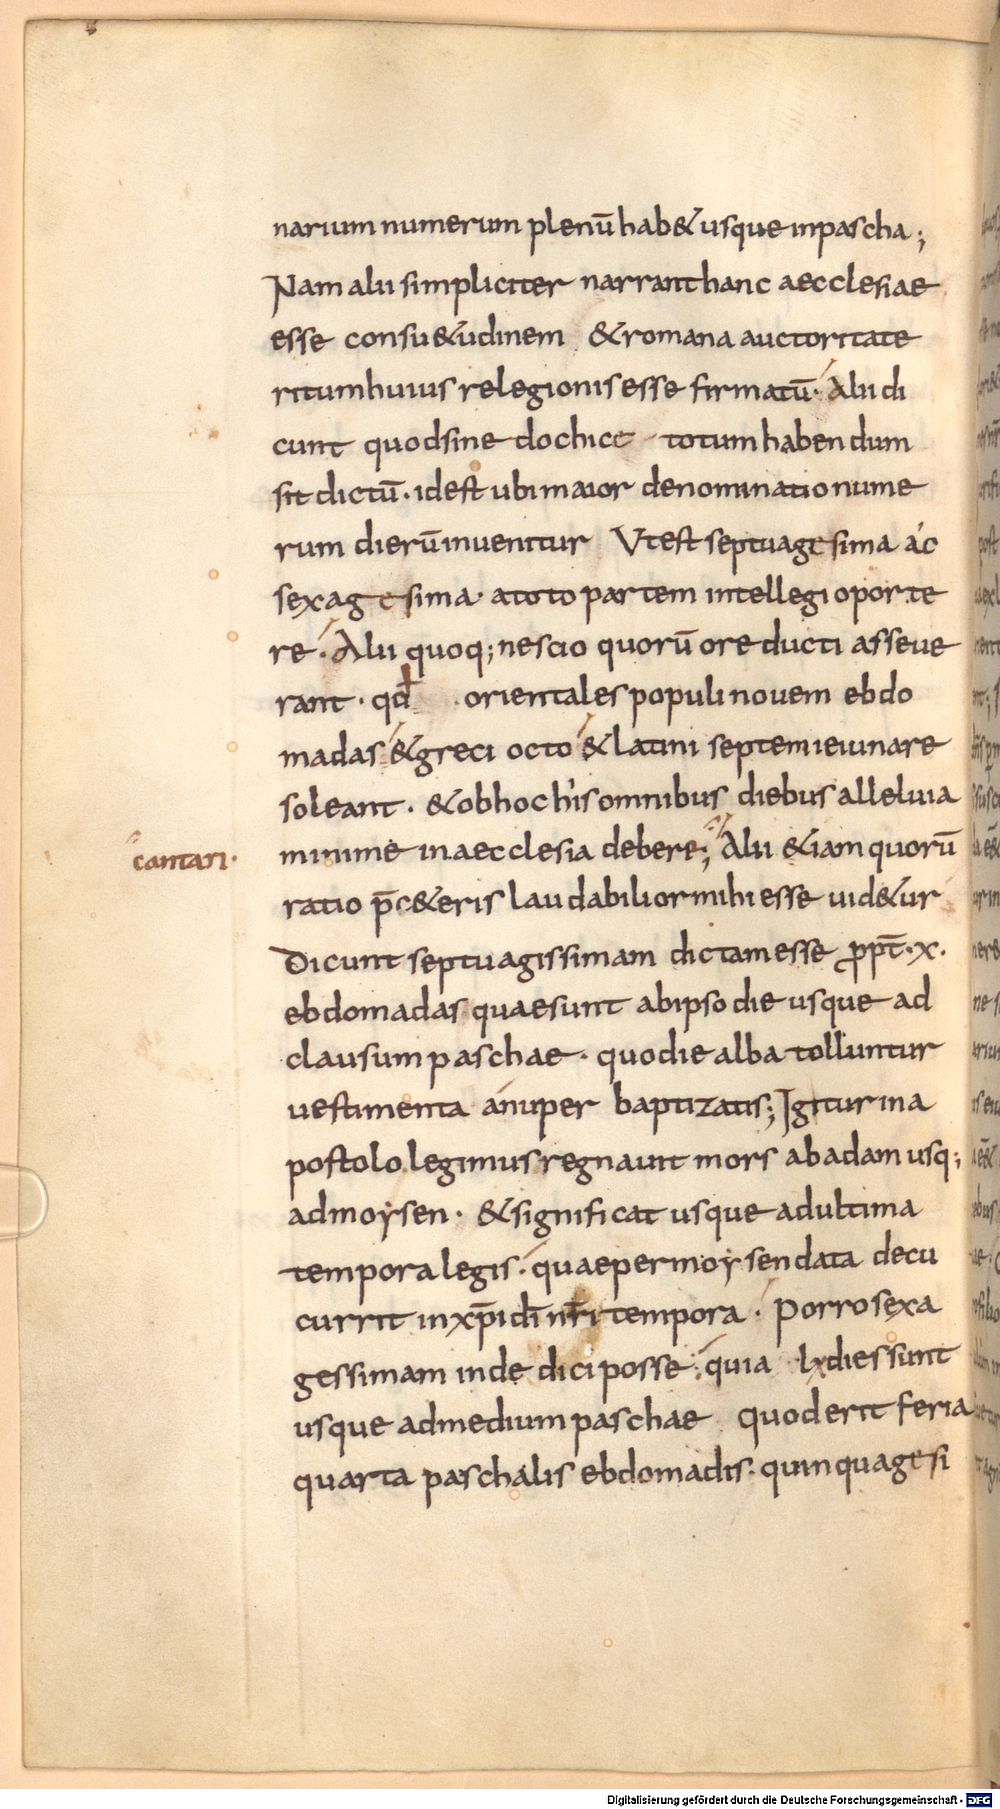 narium numerum plenū hab& usque inpascha;
Nam alii simpliciter narrant hanc aecclesiae
esse consu&udinem & romana auctoritate
ritum huius relegionis esse firmatū· Alii di
cunt quod sine dochice totum habendum
sit dictū· id est ubi maior denominatio nume
rum dierū inuenitur Vt est septuagesima ac
sexagesima· a toto partem intellegi oporte
re· Alii quoq; nescio quorū ore ducti asseue
rant· qđ orientales populi nouem ebdo
madas & greci octo & latini septem ieiunare
soleant· & ob hoc his omnibus diebus alleluia
cantari·
minime in aecclesia debere; Alii &iam quorū
ratio p̄c&eris laudabilior mihi esse uid&ur
Dicunt septuagissimam dictam esse ꝓpt̄·x·
ebdomadas quae sunt ab ipso die usque ad
clausum paschae· quo die alba tolluntur
uestimenta a nuper baptizatis; Igitur in a
postolo legimus regnauit mors ab adam usq;
ad moysen· & significat usque ad ultima
tempora legis· quae per moysen data decu
currit in xp̄i dn̄i nr̄i tempora· Porro sexa
gessimam inde dici posse· quia lx dies sunt
usque ad medium paschae quod erit feria
quarta paschalis ebdomadis· quinquagesi
Digitalisierung gefördert durch die Deutsche Forschungsgemeinschaft - DFG